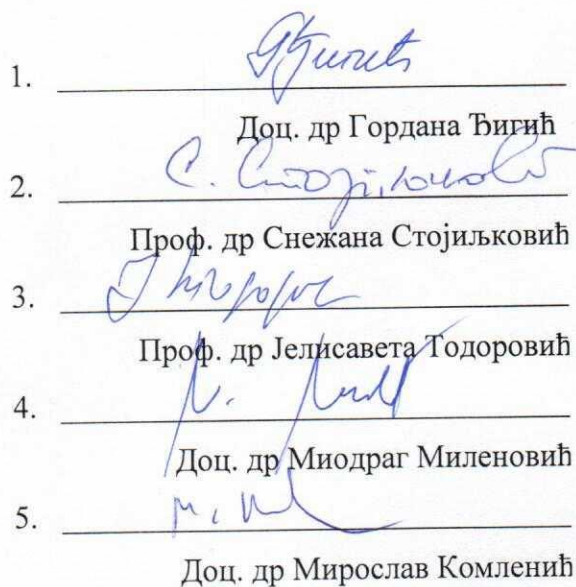 1.
Доц. др Гордана Ђигић
2. С. Стојиљковић
Проф. др Снежана Стојиљковић
3.
Проф. др Јелисавета Тодоровић
4.
Доц. др Миодраг Миленовић
5.
Доц. др Мирослав Комленић